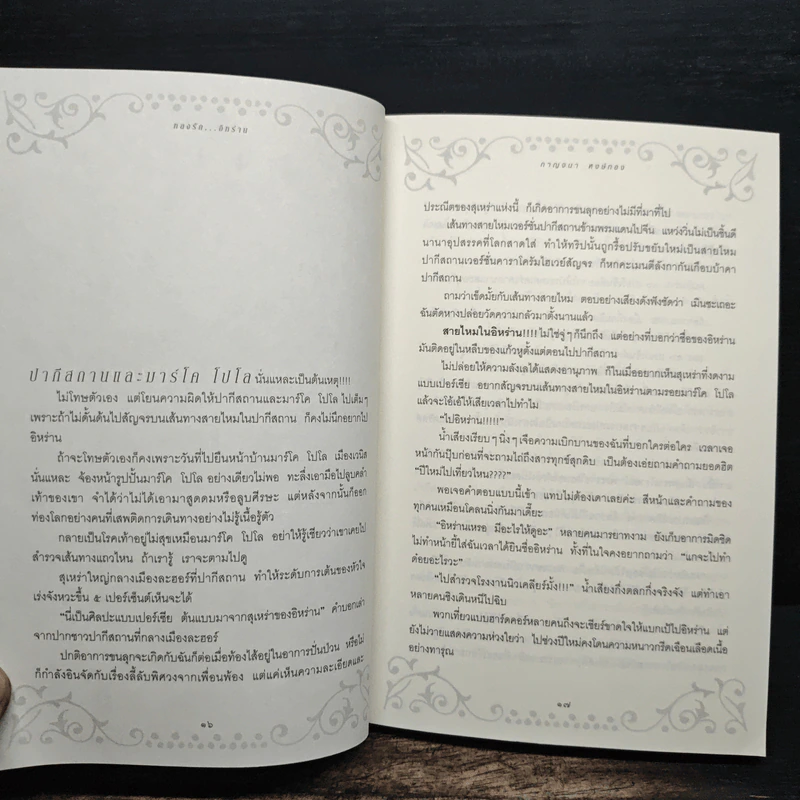 หลงรัก...อิหร่าน
ปากีสถานและมาร์โค โปโล นั่นแหละเป็นต้นเหตุ!!!!
ไม่โทษตัวเอง แต่โยนความผิดให้ปากีสถานและมาร์โค โปโล ไปเต็มๆ
เพราะถ้าไม่ดั้นด้นไปสัญจรบนเส้นทางสายไหมในปากีสถาน ก็คงไม่นึกอยากไป
อิหร่าน
ถ้าจะโทษตัวเองก็คงเพราะวันที่ไปยืนหน้าบ้านมาร์โค โปโล เมืองเวนิส
นั่นแหละ จ้องหน้ารูปปั้นมาร์โค โปโล อย่างเดียวไม่พอ ทะลึ่งเอามือไปลูบคลำ
เท้าของเขา จำได้ว่าไม่ได้เอามาสูดดมหรือลูบศีรษะ แต่หลังจากนั้นก็ออก
ท่องโลกอย่างคนที่เสพติดการเดินทางอย่างไม่รู้เนื้อรู้ตัว
กลายเป็นโรคเท้าอยู่ไม่สุขเหมือนมาร์โค โปโล อย่าให้รู้เชียวว่าเขาเคยไป
สำรวจเส้นทางแถวไหน ถ้าเรารู้ เราจะตามไปดู
สุเหร่าใหญ่กลางเมืองละฮอร์ที่ปากีสถาน ทำให้ระดับการเต้นของหัวใจ
เร่งจังหวะขึ้น ๕ เปอร์เซ็นต์เห็นจะได้
"นี่เป็นศิลปะแบบเปอร์เซีย ต้นแบบมาจากสุเหร่าของอิหร่าน" คำบอกเล่า
จากปากชาวปากีสถานที่กลางเมืองละฮอร์
ปกติอาการขนลุกจะเกิดกับฉันก็ต่อเมื่อท้องไส้อยู่ในอาการปั่นป่วน หรือไม่
ก็กำลังอินจัดกับเรื่องลี้ลับพิศวงจากเพื่อนพ้อง แต่แค่เห็นความละเอียดและ
๑๖
กาญจนา หงษ์ทอง
ประณีตของสุเหร่าแห่งนี้ ก็เกิดอาการขนลุกอย่างไม่มีที่มาที่ไป
เส้นทางสายไหมเวอร์ชั่นปากีสถานข้ามพรมแดนไปจีน แหว่งวิ่นไม่เป็นชิ้นดี
นานาอุปสรรคที่โลกสาดใส่ ทำให้ทริปนั้นถูกรื้อปรับขยับใหม่เป็นสายไหม
ปากีสถานเวอร์ชั่นคาราโครัมไฮเวย์สัญจร ก็หกคะเมนตีลังกากันเกือบบ้าคา
ปากีสถาน
ถามว่าเข็ดมั้ยกับเส้นทางสายไหม ตอบอย่างเสียงดังฟังชัดว่า เมินซะเถอะ
ฉันตัดหางปล่อยวัดความกลัวมาตั้งนานแล้ว
สายไหมในอิหร่าน!!!! ไม่ใช่จู่ๆ ก็นึกถึง แต่อย่างที่บอกว่าชื่อของอิหร่าน
มันติดอยู่ในหลืบของแก้วหูตั้งแต่ตอนไปปากีสถาน
ไม่ปล่อยให้ความลังเลได้แสดงอานุภาพ ก็ในเมื่ออยากเห็นสุเหร่าที่งดงาม
แบบเปอร์เซีย อยากสัญจรบนเส้นทางสายไหมในอิหร่านตามรอยมาร์โค โปโล
แล้วจะโอ้เอ้ให้เสียเวลาไปทำไม
"ไปอิหร่าน!!!!!"
น้ำเสียงเรียบๆ นิ่งๆ เจือความเบิกบานของฉันที่บอกใครต่อใคร เวลาเจอ
หน้ากันปุ๊บก่อนที่จะถามไถ่ถึงสารทุกข์สุกดิบ เป็นต้องเอ่ยถามคำถามยอดฮิต
"ปีใหม่ไปเที่ยวไหน????"
พอเจอคำตอบแบบนี้เข้า แทบไม่ต้องเดาเลยค่ะ สีหน้าและคำถามของ
ทุกคนเหมือนโคลนนิ่งกันมาเดี๊ยะ
"อิหร่านเหรอ มีอะไรให้ดูอะ" หลายคนมารยาทงาม ยังเก็บอาการมิดชิด
ไม่ทำหน้ายี้ใส่ฉันเวลาได้ยินชื่ออิหร่าน ทั้งที่ในใจคงอยากถามว่า "แกจะไปทำ
ด๋อยอะไรวะ"
"ไปสำรวจโรงงานนิวเคลียร์มั้ง!!!" น้ำเสียงกึ่งตลกกึ่งจริงจัง แต่ทำเอา
หลายคนชิ่งเดินหนีไปฉิบ
พวกเที่ยวแบบฮาร์ดคอร์หลายคนถึงจะเชียร์ขาดใจให้แบกเป้ไปอิหร่าน แต่
ยังไม่วายแสดงความห่วงใยว่า ไปช่วงปีใหม่คงโดนความหนาวกรีดเฉือนเลือดเนื้อ
อย่างทารุณ
๑๗